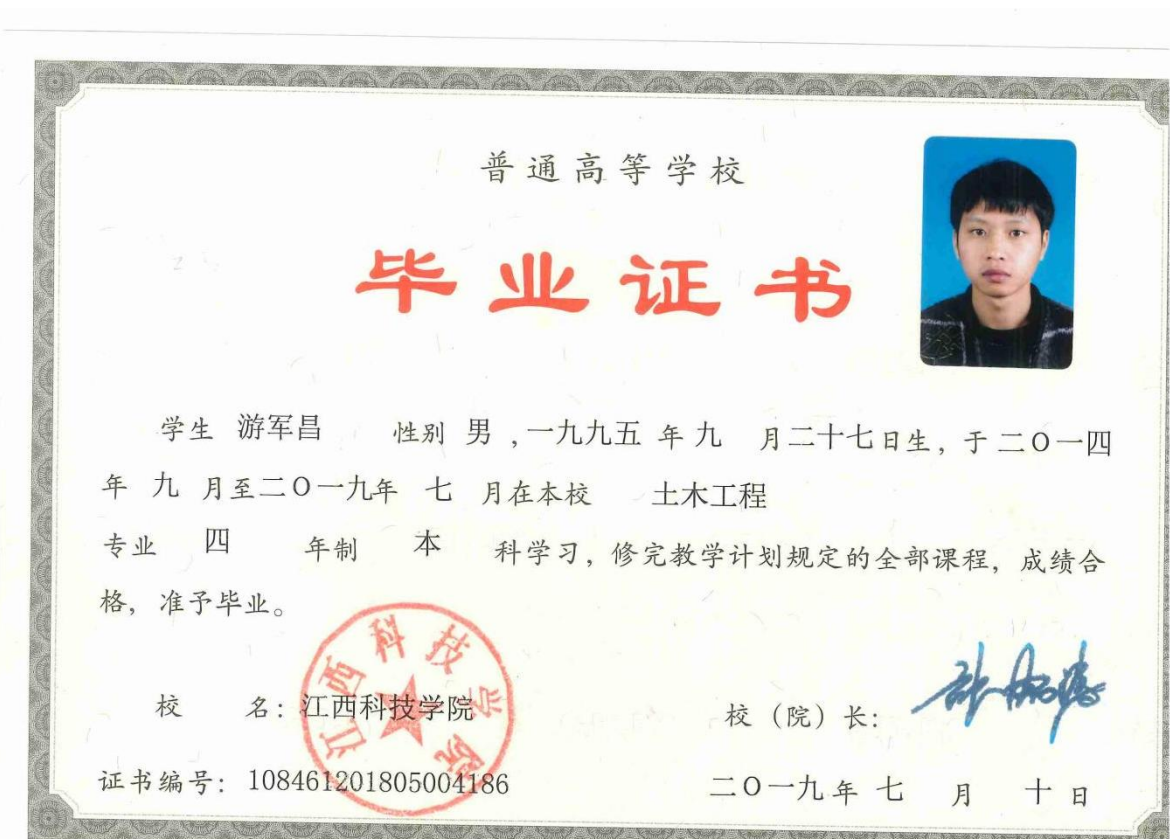 普通高等学校
毕业证书
学生 游军昌 性别 男 ,一九九五 年 九 月二十七日生, 于 二O一四
年 九 月至二O一九年 七 月在本校 土木工程
专业 四 年制 本 科学习, 修完教学计划规定的全部课程, 成绩合
格, 准予毕业。
江西科技学院
校 名: 江西科技学院
校 (院) 长:
证书编号: 108461201805004186
二O一九 年 七 月 十 日